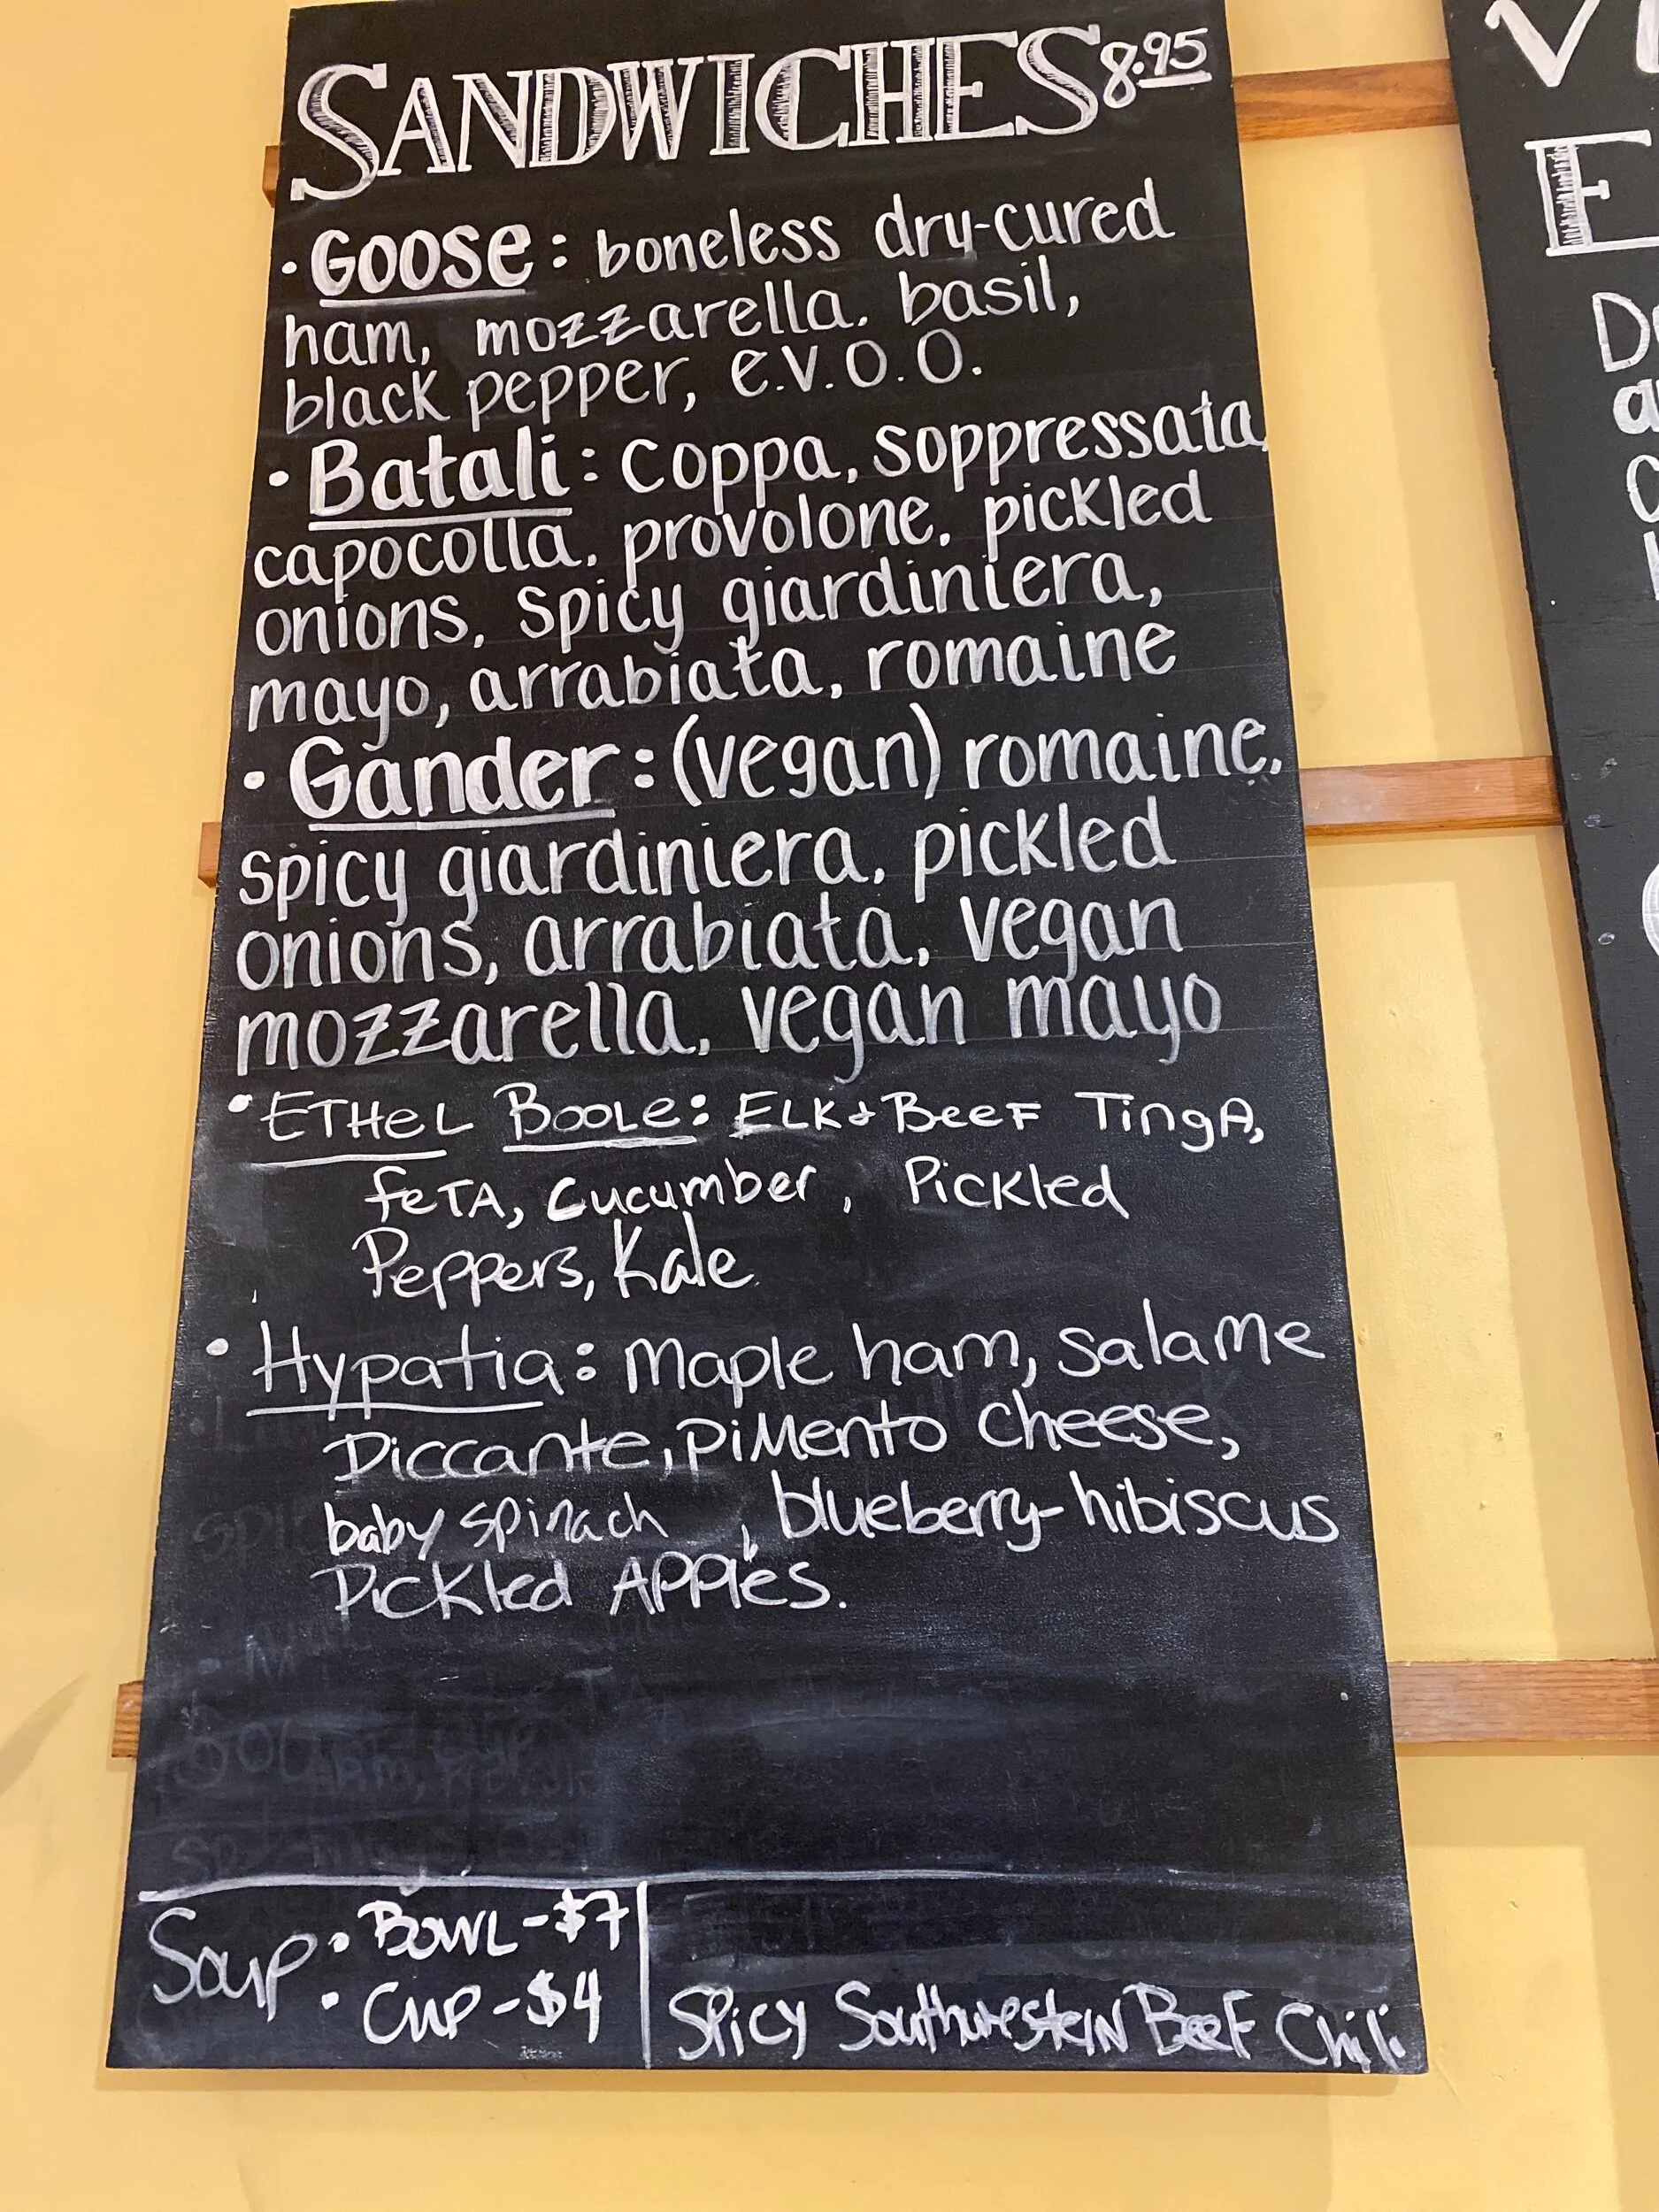 SANDWICHES 8.95
• Goose: boneless dry-cured
ham, mozzarella. basil,
black pepper, e.v.o.o.
• Batali: coppa, soppressata,
capocolla, provolone, pickled
onions, spicy giardiniera,
mayo, arrabiata, romaine
• Gander: (vegan) romaine,
spicy giardiniera, pickled
onions, arrabiata, vegan
mozzarella, vegan mayo
• ETHeL BOOLe: ELK + BeeF TingA,
feTA, Cucumber, Pickled
Peppers, Kale
• Hypatia: Maple ham, salame
Piccante, PiMento cheese,
baby spinach, blueberry-hibiscus
Pickled APPles.
Soup • BOWL - $7
• CUP - $4
SPicy SouthwesteRN BeeF Chili
E